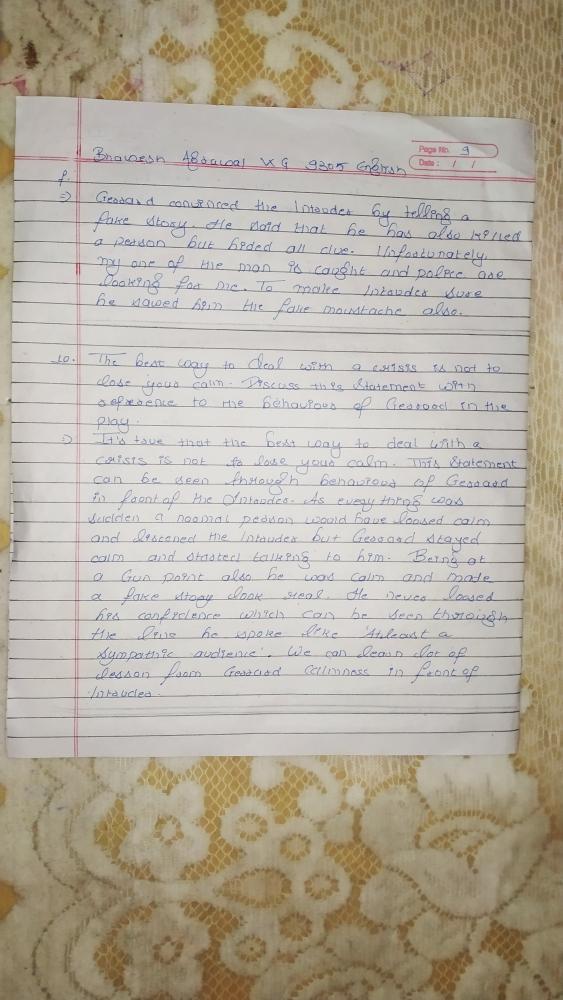 Page No. 9
Date : / /
Bhawesh Agrawal X G 9305 English
9.
⇒ Gerrard convinced the Intruder by telling a
fake story. He said that he has also killed
a person but hided all clue. Unfortunately,
my one of the man is caught and police are
looking for me. To make Intruder sure
he sowed him the fake moustache also.
10. The best way to deal with a crisis is not to
lose your calm. Discuss this statement with
reference to the behaviour of Gerrard in the
play.
⇒ It's true that the best way to deal with a
crisis is not to lose your calm. This statement
can be seen through behaviour of Gerrard
in front of the Intruder. As every thing was
sudden a normal person would have loosed calm
and listened the Intruder but Gerrard stayed
calm and started talking to him. Being at
a Gun point also he was calm and made
a fake story look real. He never loosed
his confidence which can be seen thorough
the line he spoke like 'Atleast a
sympathic audience'. We can learn lot of
lesson from Gerrard calmness in front of
Intruder.